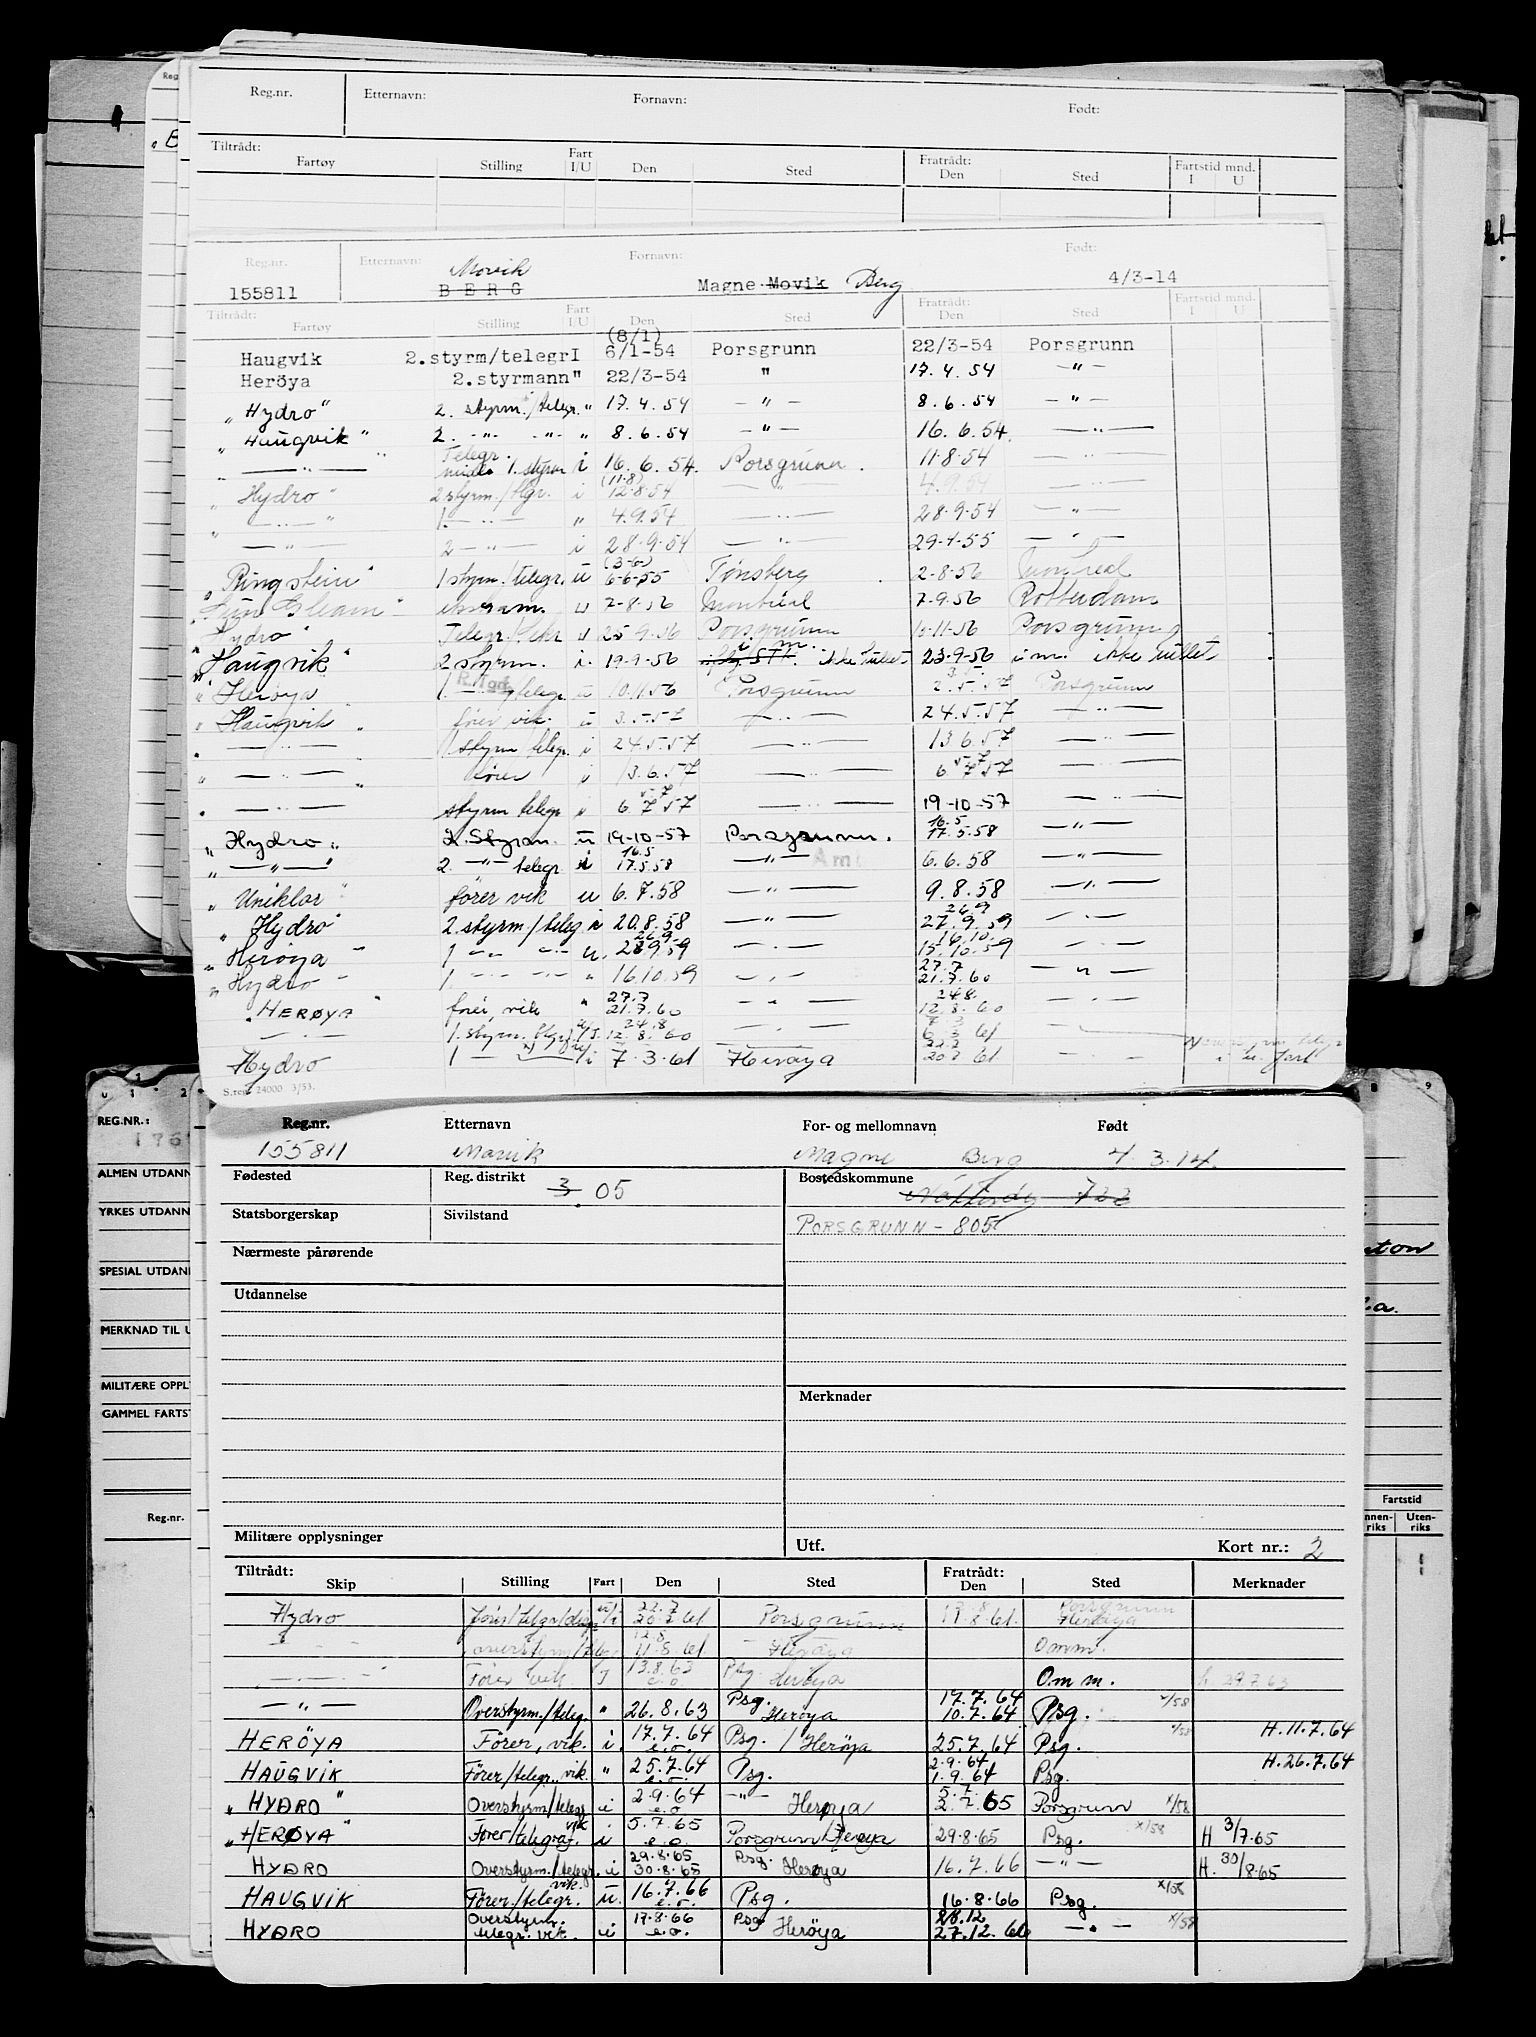 Reg.nr. Etternavn: Fornavn: Født:
Tiltrådt: Fratrådt: Fartstid mnd.
Fartøy Stilling Fart I/U Den Sted Den Sted I U
Reg.nr. Etternavn: Fornavn: Født:
Movik
155811 BERG Magne Movik Berg 4/3-14
Tiltrådt: Fratrådt: Fartstid mnd.
Fartøy Stilling Fart I/U Den Sted Den Sted I U
(8/1)
Haugvik 2.styrm/telegr I 6/1-54 Porsgrunn 22/3-54 Porsgrunn
Heröya 2.styrmann " 22/3-54 " 17.4.54 — " —
"Hydro" 2. styrm./telegr. " 17.4.54 — " — 8.6.54 — " —
"Haugvik" 2. -"- -"- " 8.6.54 — " — 16.6.54. — " —
" — " — " Telegr. midl. 1. styrm i 16.6.54. Porsgrunn. 11-8-54 — " —
(11-8)
"Hydro" 2 styrm./tlgr. i 12-8-54 — " — 4.9.54 — " —
" — " — " 1. — " — " 4.9.54 — " — 28-9-54 — " —
" — " — 2 — " — i 28-9-54 — " — 29-4-55 — " —
(3-6)
"Ringstein" 1 styrm./telegr. u 6-6-55 Tönsberg 2-8-56 Montreal
u 7-8-56 Montreal 7-9-56 Rotterdam
"Hydro" Telegr. u 25-9-56 Porsgrunn 10-11-56 Porsgrunn
"Haugvik" 2 styrm. i. 19-9-56 i m. ikke fullet 23-9-56 i m. ikke fullet
"Herøya" 1. — telegr. u 10.11.56 Porsgrunn 2.5.57 Porsgrunn
"Haugvik" fører vik. u 3.5.57 — " — 24.5.57 — " —
" — " — 1 styrm telegr. i 24.5.57 — " — 13.6.57 — " —
" — " — " fører i 13.6.57 — " — 6.7.57 — " —
" — " — styrm telegr i 6.7.57 — " — 19-10-57 — " —
16.5
"Hydro" 2. Styrm. u 19-10-57 Porsgrunn. 17.5.58 — " —
16.5
" — " — " 2. — " — telegr. i 17.5.58 — " — 6.6.58 — " —
"Uniklor" fører vik u 6.7.58 — " — 9.8.58 — " —
26.9
"Hydro" 2. styrm./teleg i 20.8.58 — " — 27.9.59 — " —
26.9 16.10
"Herøya" 1 — " — — " — u. 28.9.59 — " — 15.10.59 — " —
27.7
"Hydro" 1. — " — — " — " 16.10.59 — " — 21.7.60 — " —
27.7 24.8.
"HERØYA" fører, vik " 21.7.60 — " — 12.8.60 — " —
24.8 7.3
— " — 1. styrm. tlegr. u/I. 12.8.60 — " — 6.3.61 — " —
22.7
Hydro 1 — " — i 7.3.61 Herøya 20.7.61 — " — i u. fart
S.reg. 24000 3/53.
REG.NR.:
ALMEN UTDANN
YRKES UTDANN
SPESIAL UTDAN
MERKNAD TIL U
MILITÆRE OPPL
GAMMEL FARTST
Reg.nr.
Fartstid
nnen- riks Uten- riks
Reg.nr. Etternavn For- og mellomnavn Født
155811 Movik Magne Berg 4.3.14.
Fødested Reg. distrikt 3. 05 Bostedskommune Nøtterøy 722
Statsborgerskap Sivilstand PORSGRUNN - 805
Nærmeste pårørende
Utdannelse
Merknader
Militære opplysninger Utf. Kort nr.: 2
Tiltrådt: Fratrådt:
Skip Stilling Fart Den Sted Den Sted Merknader
22.7 12.8 Porsgrunn
Hydro u/i 20.7.61 Porsgrunn 11.8.61. Herøya
12.8
— " — 11.8.61 Herøya Omm.
— " — Fører vik I 13.8.63 e.o. Psg. Herøya Omm. h 29.7.63
— " — Overstyrm./teleg. " 26.8.63 Psg. Herøya 17.7.64 10.7.64 Psg. x/58
HERÖYA Fører, vik. i. 17.7.64 e.o. Psg. / Herøya 25.7.64 Psg. x/58 H.11.7.64
HAUGVIK Fører/telegr., vik. " 25.7.64 e.o. Psg. 2.9.64 1.9.64 Psg. H.26.7.64
"HYDRO" Overstyrm/telegr i 2.9.64 e.o — " — Herøya 5.7. 2.7.65 Porsgrunn x/58
"HERØYA" Fører/telegraf. vik i 5.7.65 e.o. Porsgrunn/Herøya 29.8.65 Psg. x/58 H 3/7.65
HYDRO Overstyrm./telegr. i 29.8.65 30.8.65 Psg. Herøya 16.7.66 — " — H. 30/8.65
HAUGVIK Fører./telegr. vik. u. 16.7.66 e.o. Psg. 16.8.66 Psg. x/58
HYDRO Overstyrm. telegr. vik. i 17.8.66 e.o. Psg Herøya 28.12 27.12.66 — " — x/58